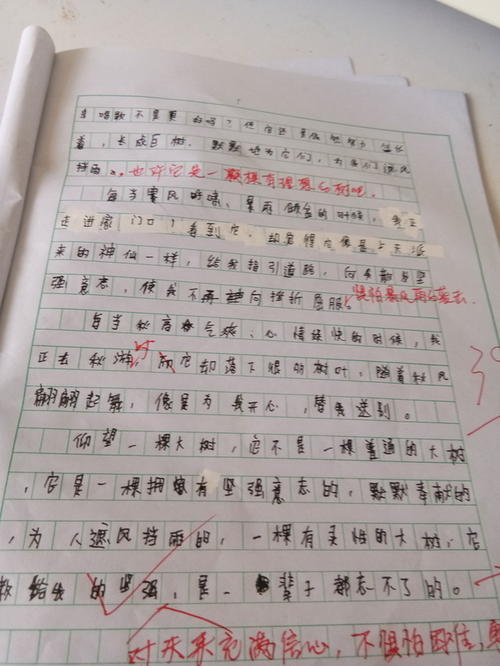 幸唱歌不是更好吗？但它还是依然努力生长
着，长成巨树，默默地为它们，为我们遮风
挡雨。也许它是一颗棵有理想的树吧。
每当寒风呼啸，暴雨倾盆的时候，我正
走进家门口，看到它，却觉得它像是上天派
来的神仙一样，给我指引道路，向我敞与坚
强意志，使我不再向挫折屈服。惧怕暴风雨的袭击
每当秋高气爽，心情愉快的时候，我
正去秋游时，而它却落下眼明树叶，随着秋风
翩翩起舞，像是为我开心，替我送别。
仰望一棵大树，它不是一棵普通的大树
，它是一棵拥有坚强意志的，默默奉献的
，为人遮风挡雨的，一棵有灵性的大树，它
教给我的坚强，是一辈子都忘不了的。
对未来充满信心，不惧怕困难